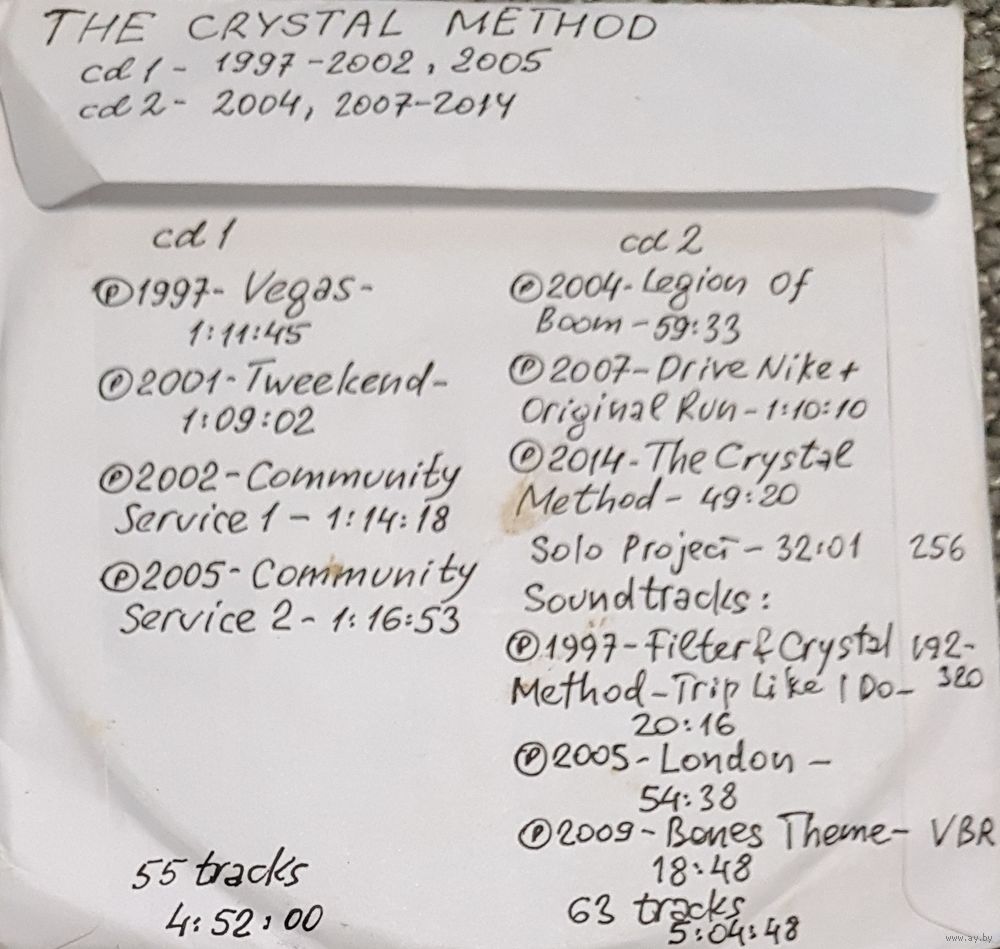 THE CRYSTAL METHOD
cd 1 - 1997-2002, 2005
cd 2 - 2004, 2007-2014
cd 1
Ⓟ1997- Vegas-
1:11:45
Ⓟ2001-Tweekend-
1:09:02
Ⓟ2002-Community
Service 1 - 1:14:18
Ⓟ2005-Community
Service 2- 1:16:53
55 tracks
4:52:00
cd 2
Ⓟ2004-Legion Of
Boom-59:33
Ⓟ2007-Drive Nike+
Original Run-1:10:10
Ⓟ2014-The Crystal
Method- 49:20
Solo Project- 32:01 256
Soundtracks:
Ⓟ1997-Filter&Crystal 192-
Method-Trip Like I Do- 320
20:16
Ⓟ2005-London -
54:38
Ⓟ2009-Bones Theme- VBR
18:48
63 tracks
5:04:48
www.ay.by